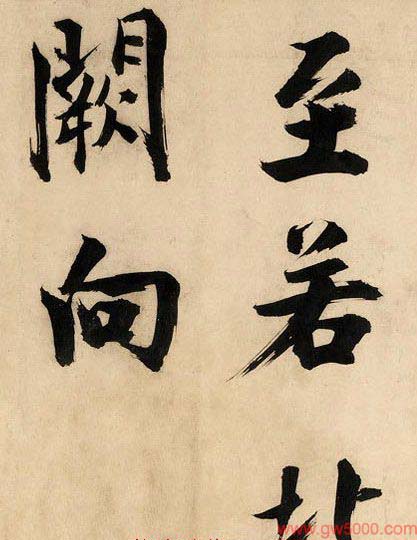 至若
闕向
www.gw5000.com